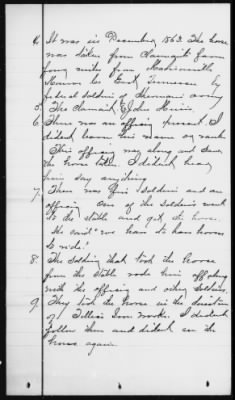 4. It was in December 1863. The horse
was taken from claimants farm
four miles from Madisonville
Monroe Co East Tennessee by
federal soldiers of Shermans army
5. The claimant & John
6. There was an officer present. I
didnt learn his name or rank
This officer was along and saw
the horse taken. I didnt hear
him say anything.
7. There was five soldiers and an
officer. One of the soldiers went
to the stable and got the horse.
He said "we have to have horses
to ride."
8. The soldier that took the horse
from the stable rode him off along
with the officer and other soldiers.
9. They took the horse in the direction
of Tellico Iron Works. I didnt
follow them and didnt see the
horse again.